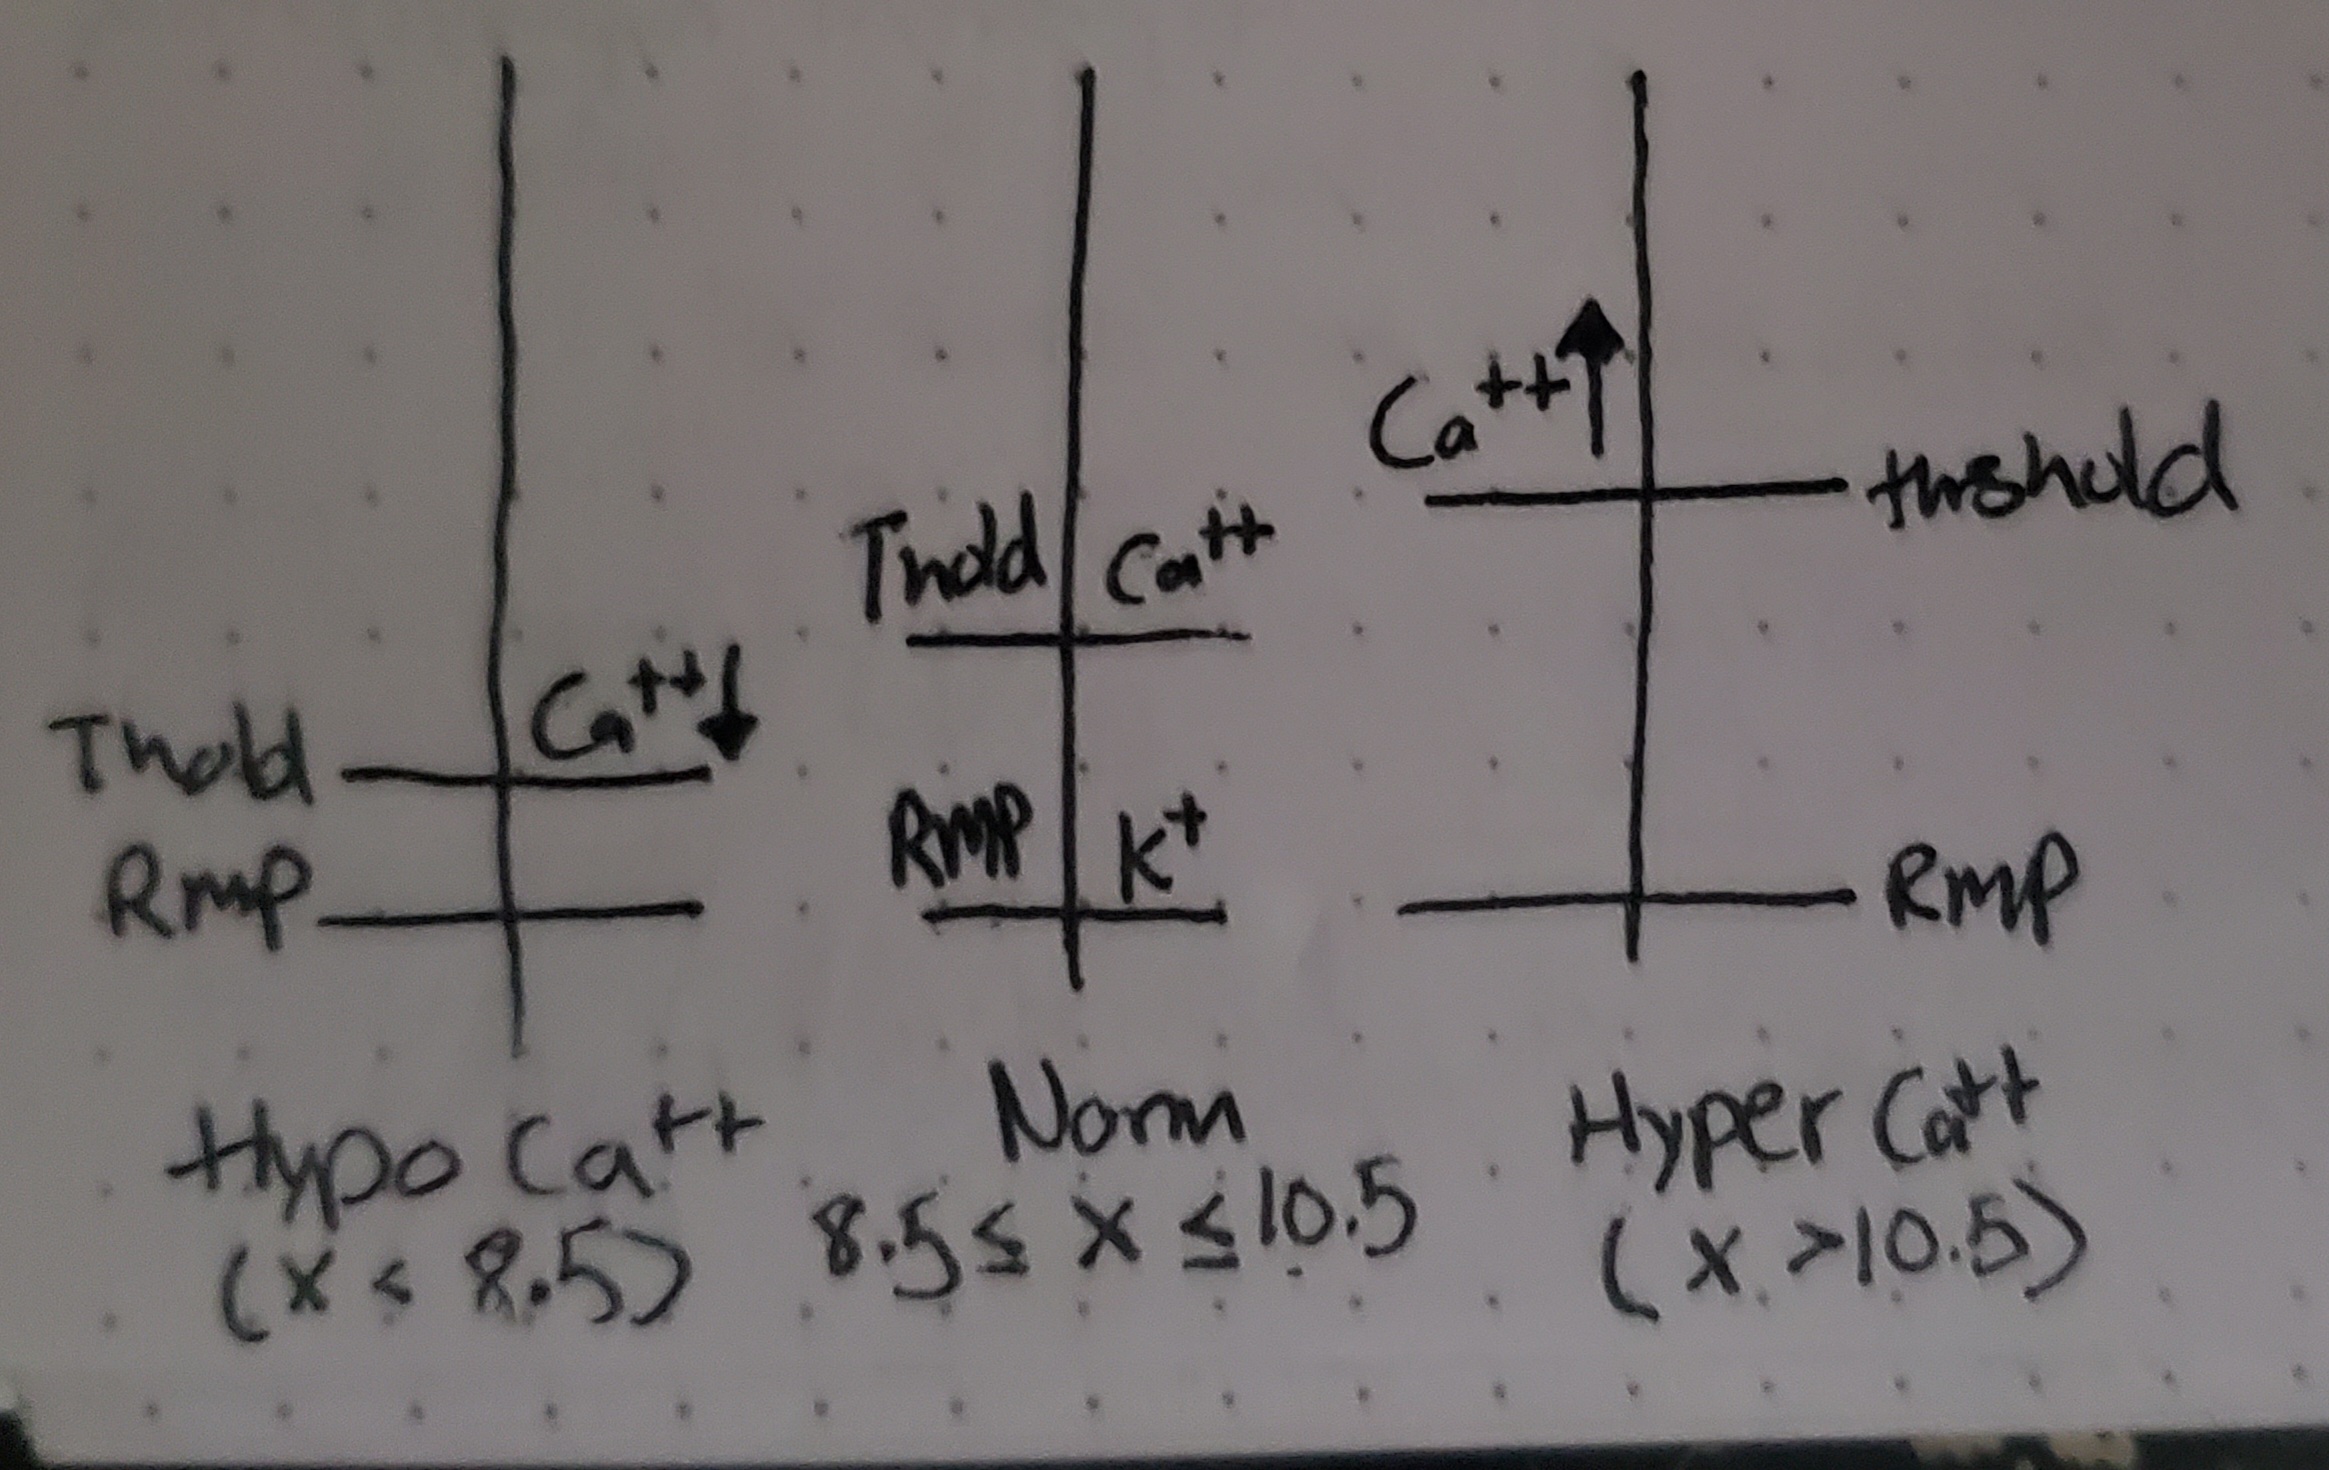 Thold
Ca++↓
Rmp
Hypo Ca++
(x < 8.5)
Thold
Ca++
Rmp
K+
Norm
8.5 ≤ x ≤ 10.5
Ca++↑
thrshold
Rmp
Hyper Ca++
(x > 10.5)